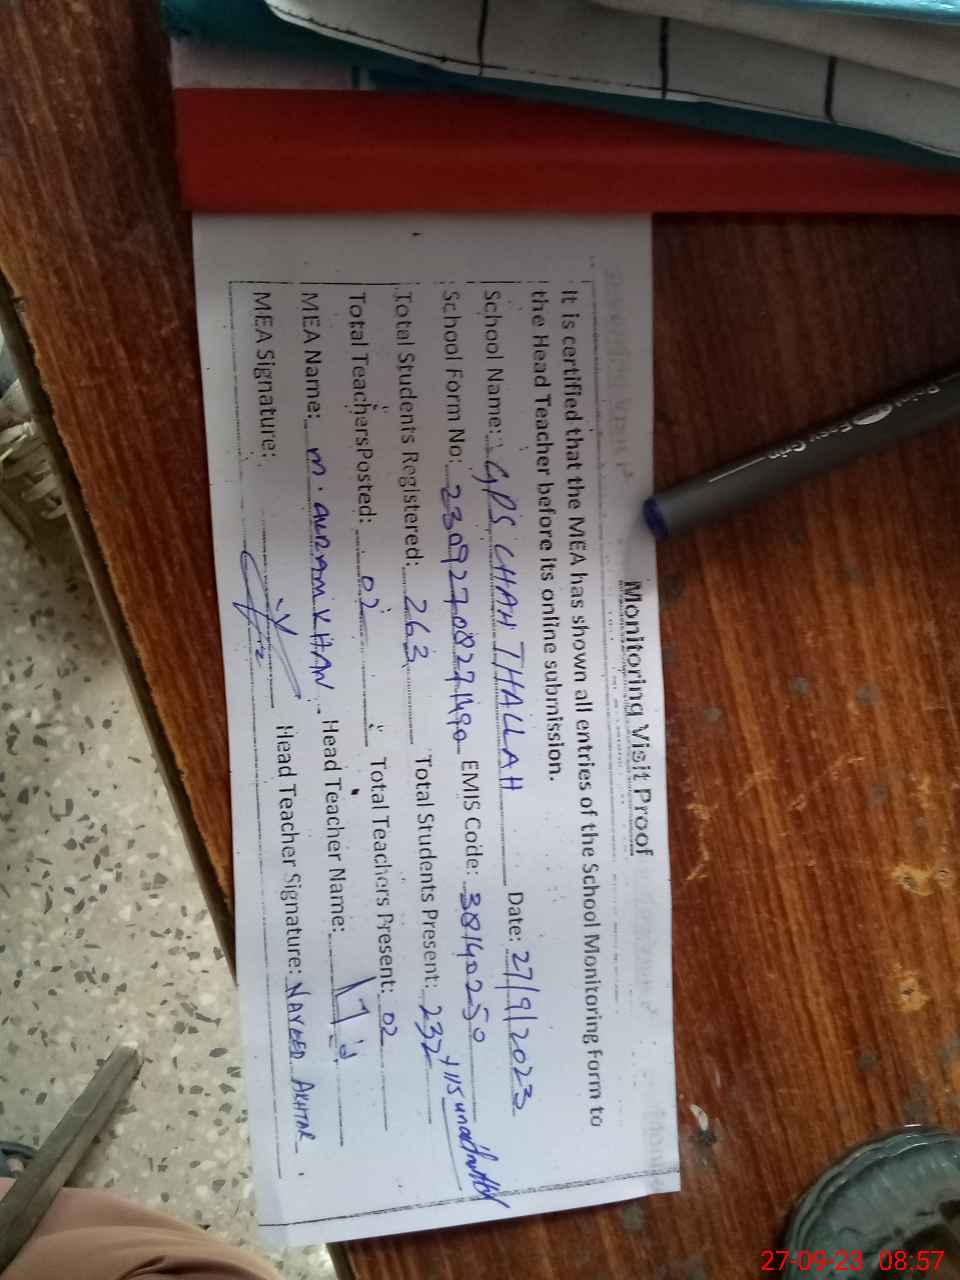 Monitoring Visit Proof
It is certified that the MEA has shown all entries of the School Monitoring Form to
the Head Teacher before its online submission.
School Name: GPS CHAH THALLAH Date: 27/9/2023
School Form No: 2309270827490 EMIS Code: 38140250
Total Students Registered: 263 Total Students Present: 232 + 115
Total Teachers Posted: 02 Total Teachers Present: 02
MEA Name: M. AKRAM KHAN Head Teacher Name:
MEA Signature: Head Teacher Signature: NAVEED AKHTAR
Easy Grip
27-09-23 08:57